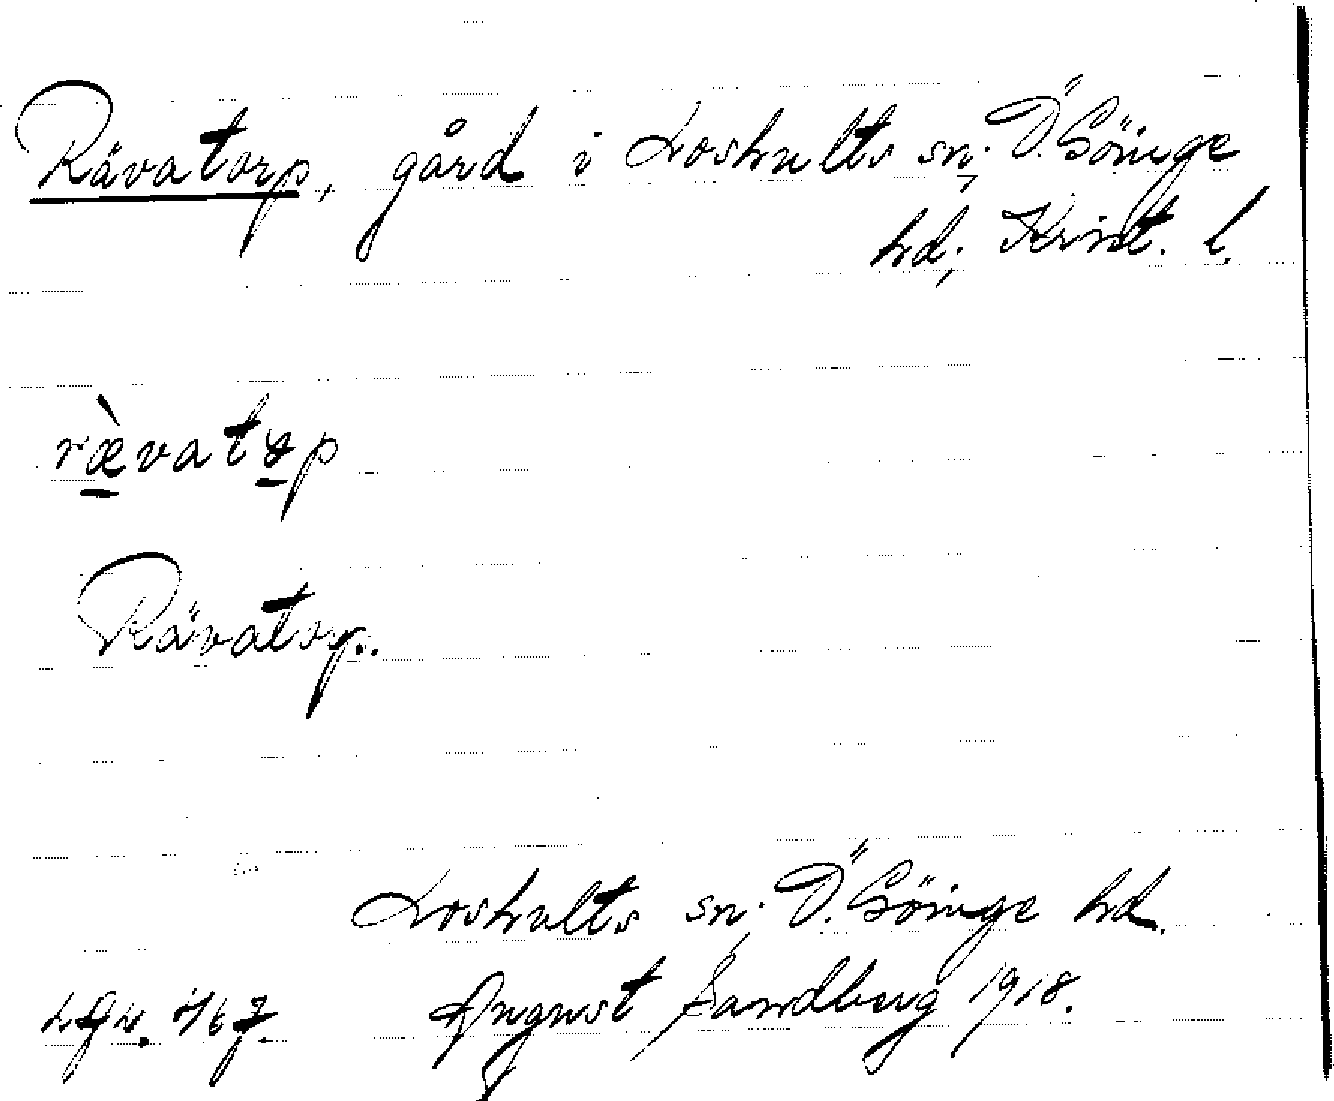 Rävatorp, gård i Loshults sn, Ö. Göinge
hd, Krist. l.
rævatɔp
Rävatorp.
Loshults sn, Ö. Göinge hd.
August Sandberg 1918.